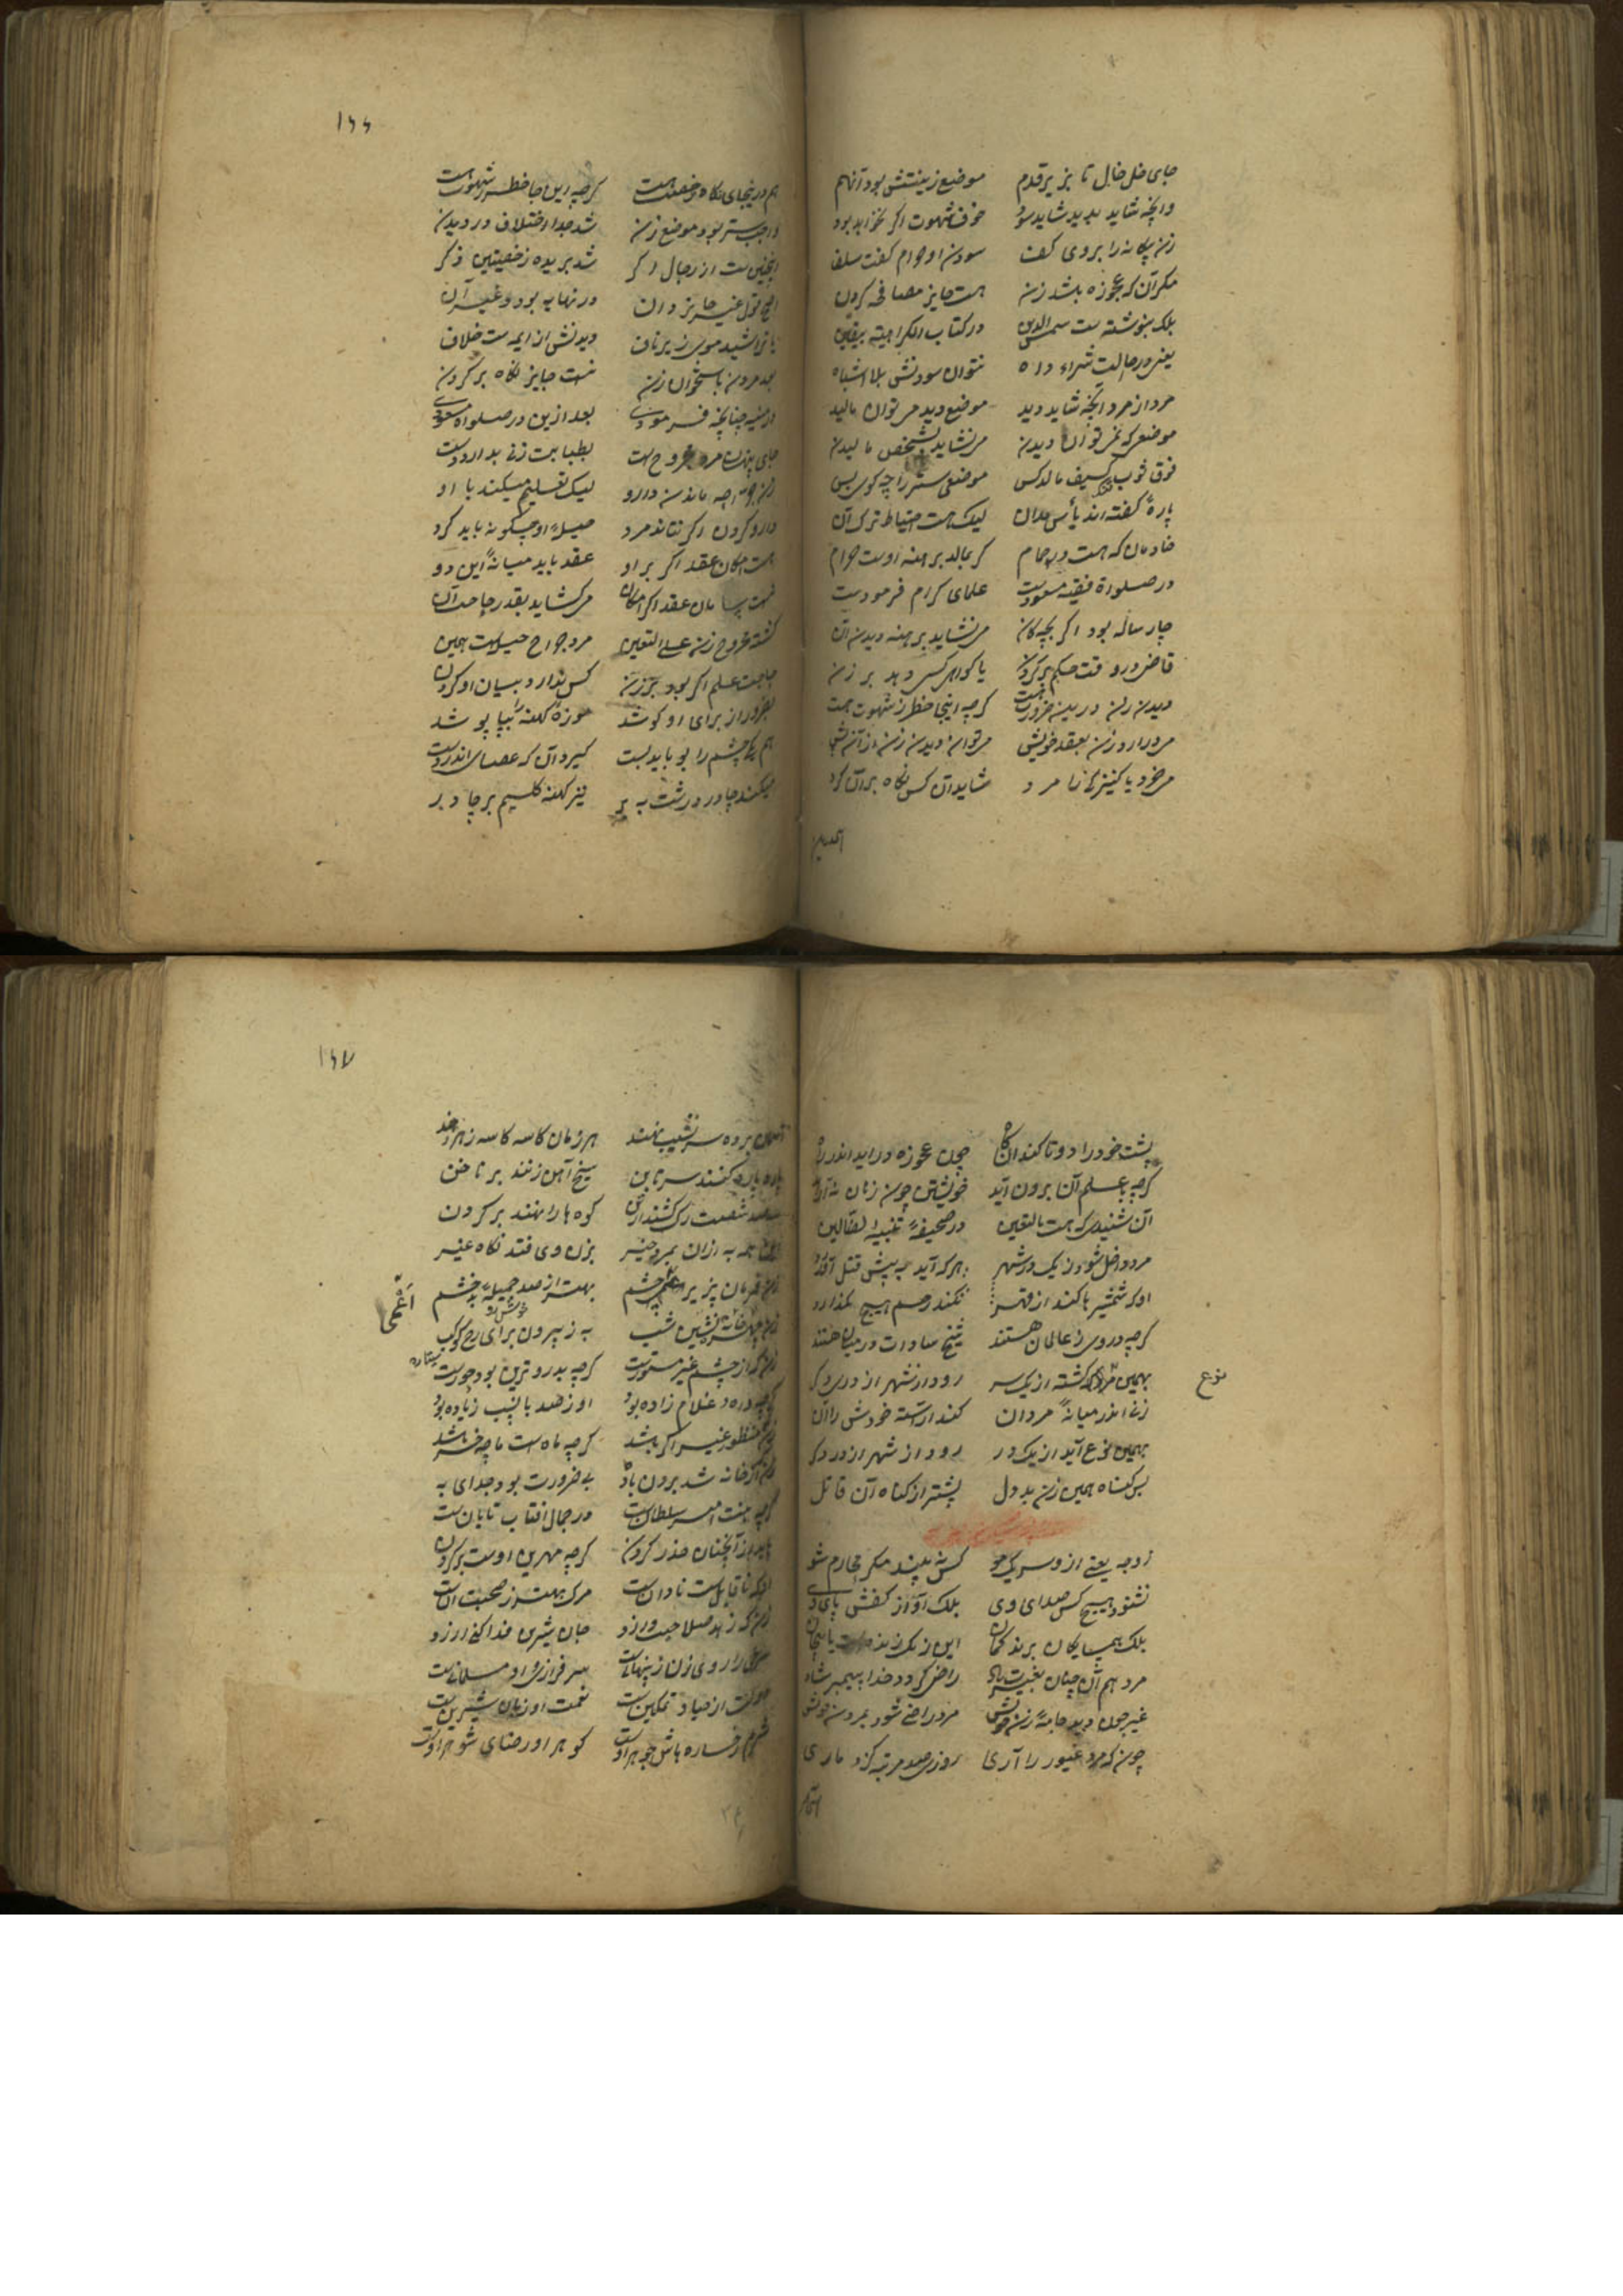 جای خل خال تا بزیر قدم موضع زینتش بود آنهم
وانچه شاید بدید شاید سود خوف شهوت اگر نخواهد بود
زن بیگانه را بروی کف سودن او حرام گفت سلف
مگر آن که عجوزه باشد زن هست جایز مصافحه کردن
بلکه بنوشته ست شمس الدین در کتاب الکراهیة بیقین
یعنی در حالت شراء دا ه نتوان سودنش بلا اشباه
مرد از مرد آنچه شاید دید موضع دید می توان مالید
موضعی که نمی توان دیدن می نشاید بشخص مالیدن
فوق ثوب کسیف مالد کس موضعی ستر را چه گوی بس
پاره گفته اند بأس مدان لیک هست احتیاط ترک آن
خادمان که هست در حمام گر بمالد برهنه اوست حرام
در صلواة فقیه مسعودیست علمای کرام فرمودست
چار ساله بود اگر بچه کان می نشاید برهنه دیدن آن
قاضی در وقت حکم بر کردن یا گواهی کسی دهد بر زن
دیدن زن درین ضرورت هست گرچه اینجا خطر ز شهوت هست
مرد آرد زن بعقد خویش می توان دیدن زن از آن پیش
می خرد یا کنیزکی را مرد شاید آن کس نگاه بر آن کرد
۱۶۶
هم درینجای نگاه رخصت هست گرچه این جا خطر ز شهوت هست
واجب ستر بود موضع زن شد جدا اختلاف در دیدن
اینچنین ست از رجال اگر شد بریده ز خصیتین ذکر
اصح قول غیر جایز دان در نهایه بود و غیر آن
یا تراشید موی زیر ناف دیدنش از ایمه ست خلاف
بعد مردن باستخوان زن نیست جایز نگاه بر کردن
در منیه چنانچه فرمودی بعد ازین در صلواة مسعودی
جای پنهان مرد مجروح هست بطبابت زنی بدارو دست
زن چو نداند دارو لیک تعلیم میکند با او
دارو کردن اگر نتاند مرد حیله او چگونه باید کرد
هست امکان عقد اگر بر او عقد باید میانه این دو
نیست سامان عقد اگر امکان می گشاید بقدر حاجت آن
گشته مجروح زن علی التعیین مرد جراح حیله ست همین
حاجت علم اگر بود بر زن کس ندارد بیان او کردن
بضرور از برای او کوشد موزه کهنه را بپا پوشد
هم یک چشم را بو باید بست گیرد آن که عصای اندر دست
میکند چادر درشت به بر نیز کهنه گلیم بر چادر
پشت خود را دو تا کند آن گاه چون عجوزه در اید اندر راه
گرچه با علم آن برون آید خویشتن چون زنان نه آراید
آن شنیدی که هست بالتعین در صحیفه تنبیه الضالین
مرد داخل شود ز یک در شهر هر که آید به پیش قتل آورد
او که شمشیر ها کند از قهر نکند رحم هیچ نگذارد
گرچه در وی ز عالمان هستند شیخ سادات در میان هستند
بهمین نوع کشته از یک سر رود از شهر از دری دگر
زن اندر میانه مردان کند آراسته خودش را آن
بهمین نوع آید از یک در رود از شهر از در دگر
بس گناه همین زن بد دل پیشتر از گناه آن قاتل
زوجه یعنی از وسر یک مو کس نبیند مگر محارم شو
نشنود هیچ کس صدای وی بلک آواز کفش پای وی
بلک همسایکان برند گمان این زنک زنده است یا بیجان
مرد هم آن چنان بغیرت باد راضی گردد خدا پیمبر شاد
غیر چون دید جامه زن خویش مرد راضی شود بمردن خویش
چون که مرد غیور را آری روزی صد مرتبه گزد ماری
نوع
۱۶۷
آنچنان برده سر نشیب نهند هر زمان کاسه کاسه زهر دهند
پاره پاره کنند سر تا بن سیخ آهن زنند بر ناخن
سیصد شصت رگ کشند از تن کوه ها را نهند بر گردن
اینهمه به ازان بمرد خیر بزن وی فتد نگاه غیر
زن فرمان پزیر اعمی چشم بهتر از صد جمیله بد خشم
زن خانه نشین شب به ز بیرون برای رخ کوکب
زن که از چشم غیر مستورست گرچه بدروترین بود حورست
گرچه داه و غلام زاده بود او ز صد با نسب زیاده بود
زن منظور غیر اگر باشد گرچه ماه ست ماچه خر باشد
زن کز خانه شد برون باد بی ضرورت بود جدای به
گرچه بنت امیر سلطان ست در جمال افتاب تابان ست
باید از آنچنان حذر کردن گرچه مهرین اوست بر گردن
او که ناقابل ست نادان ست مرگ بهتر ز صحبت آن ست
زن که زهد صلاح میورزد جان شیرین فدا کنی ارزد
مسلمانیست
عفت او زبان شیرین ست
شرم رخساره باش جوهر اوست گوهر او رضای شوهر اوست
اعمی
ستاره